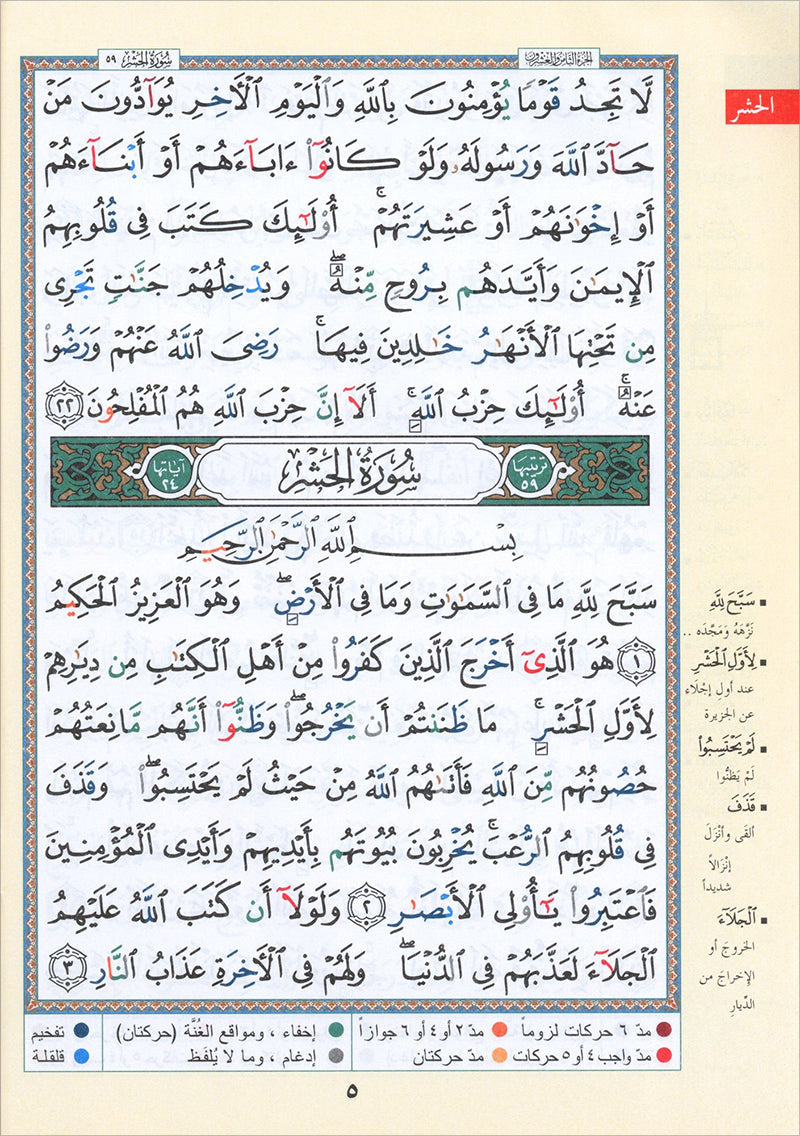 الجزء الثامن والعشرون
سورة الحشر ٥٩
الحشر
لَّا تَجِدُ قَوْمًا يُؤْمِنُونَ بِٱللَّهِ وَٱلْيَوْمِ ٱلْأَخِرِ يُوَآدُّونَ مَنْ
حَآدَّ ٱللَّهَ وَرَسُولَهُۥ وَلَوْ كَانُوٓا۟ ءَابَآءَهُمْ أَوْ أَبْنَآءَهُمْ
أَوْ إِخْوَٰنَهُمْ أَوْ عَشِيرَتَهُمْ ۚ أُو۟لَٰٓئِكَ كَتَبَ فِى قُلُوبِهِمُ
ٱلْإِيمَٰنَ وَأَيَّدَهُم بِرُوحٍ مِّنْهُ ۖ وَيُدْخِلُهُمْ جَنَّٰتٍ تَجْرِى
مِن تَحْتِهَا ٱلْأَنْهَٰرُ خَٰلِدِينَ فِيهَا ۚ رَضِىَ ٱللَّهُ عَنْهُمْ وَرَضُوا۟
عَنْهُ ۚ أُو۟لَٰٓئِكَ حِزْبُ ٱللَّهِ ۚ أَلَآ إِنَّ حِزْبَ ٱللَّهِ هُمُ ٱلْمُفْلِحُونَ ٢٢
ترتيبها ٥٩ سُورَةُ الحَشْرِ آياتها ٢٤
بِسْمِ ٱللَّهِ ٱلرَّحْمَٰنِ ٱلرَّحِيمِ
سَبَّحَ لِلَّهِ مَا فِى ٱلسَّمَٰوَٰتِ وَمَا فِى ٱلْأَرْضِ ۖ وَهُوَ ٱلْعَزِيزُ ٱلْحَكِيمُ
١ هُوَ ٱلَّذِىٓ أَخْرَجَ ٱلَّذِينَ كَفَرُوا۟ مِنْ أَهْلِ ٱلْكِتَٰبِ مِن دِيَٰرِهِمْ
لِأَوَّلِ ٱلْحَشْرِ ۚ مَا ظَنَنتُمْ أَن يَخْرُجُوا۟ ۖ وَظَنُّوٓا۟ أَنَّهُم مَّانِعَتُهُمْ
حُصُونُهُم مِّنَ ٱللَّهِ فَأَتَىٰهُمُ ٱللَّهُ مِنْ حَيْثُ لَمْ يَحْتَسِبُوا۟ ۖ وَقَذَفَ
فِى قُلُوبِهِمُ ٱلرُّعْبَ ۚ يُخْرِبُونَ بُيُوتَهُم بِأَيْدِيهِمْ وَأَيْدِى ٱلْمُؤْمِنِينَ
فَٱعْتَبِرُوا۟ يَٰٓأُو۟لِى ٱلْأَبْصَٰرِ ٢ وَلَوْلَآ أَن كَتَبَ ٱللَّهُ عَلَيْهِمُ
ٱلْجَلَآءَ لَعَذَّبَهُمْ فِى ٱلدُّنْيَا ۖ وَلَهُمْ فِى ٱلْأَخِرَةِ عَذَابُ ٱلنَّارِ ٣
سَبَّحَ لِلَّهِ
نَزَّهَهُ وَمَجَّدَه ..
لِأَوَّلِ الْحَشْرِ
عند أول إجْلَاء
عن الجزيرة
لَمْ يَحْتَسِبُوا
لَمْ يَظنُّوا
قَذَفَ
ألقَى وأنْزَلَ
إنْزَالاً
شديداً
الْجَلَاءَ
الخروجَ أو
الإخراجَ من
الدِّيارِ
مدّ ٦ حركات لزوماً مدّ ٢ أو ٤ أو ٦ جوازاً إخفاء ، ومواقع الغُنَّة (حركتان) تفخيم
مدّ واجب ٤ أو ٥ حركات مدّ حركتان إدغام ، وما لا يُلفَظ قلقلة
٥